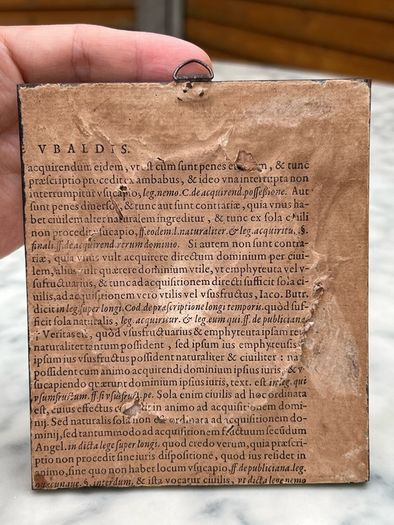 VBALDIS.
acquirendum eidem, vt est cum sunt penes , & tunc
præscriptio procedit ex ambabus, & ideo vna interrupta non
interrumpitur vsucapio, leg. nemo. C. de acquirend. possessione. Aut
sunt penes diuersos, & tunc aut sunt contrariæ, quia vnus ha-
bet ciuilem alter naturalem ingreditur, & tunc ex sola ciuili
non procedit vsucapio, ff. eodem. l. naturaliter. & leg. acquiritu. §.
finali. ff. de acquirend. rerum dominio. Si autem non sunt contra-
riæ, quia vnus vult acquirere directum dominium per ciui-
lem, alius vult quærere dominium vtile, vt emphyteuta vel v-
sufructuarius, & tunc ad acquisitionem directi sufficit sola ci-
uilis, ad acquisitionem vero vtilis vel vsusfructus, Iaco. Butr.
dicit in leg. super longi. Cod. de præscriptione longi temporis. quod suf-
ficit sola naturalis, leg. acquiritur. & leg. eum qui. ff. de publiciana
: Veritas est, quod vsufructuarius & emphyteuta ipsam rem
naturaliter tantum possident, sed ipsum ius emphyteusis
ipsum ius vsusfructus possident naturaliter & ciuiliter : na
possident cum animo acquirendi dominium ipsius iuris, & v
sucapiendo quærunt dominium ipsius iuris, text. est in leg. qui
vsumfructum. ff. si vsusfruct. pe. Sola enim ciuilis ad hoc ordinata
est, cuius effectus cum animo ad acquisitionem domi-
nij. Sed naturalis sola non est ordinata ad acquisitionem do-
minij, sed tantummodo ad acquisitionem facti secundum
Angel. in dicta lege super longi. quod credo verum, quia præscri-
ptio non procedit sine iuris dispositione, quod ius residet in
animo, sine quo non habet locum vsucapio, ff. de publiciana. leg.
§. interdum, & ista vocatur ciuilis, vt dicta lege nemo